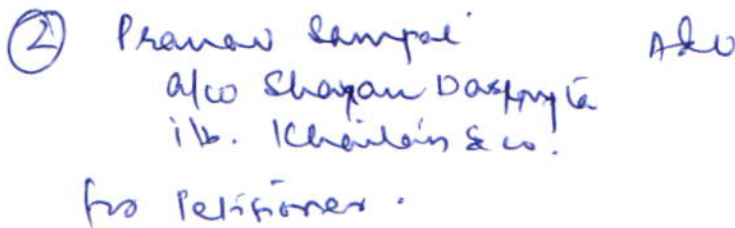 ② Pranav Sampat Adv
a/w Shayan Dasgupta
i/b. Khaitan & co.
for Petitioner.